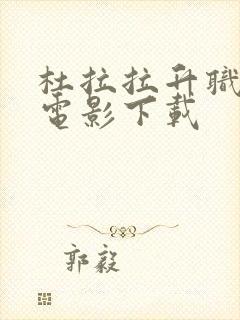 杜拉拉升職
電影下載
郭毅